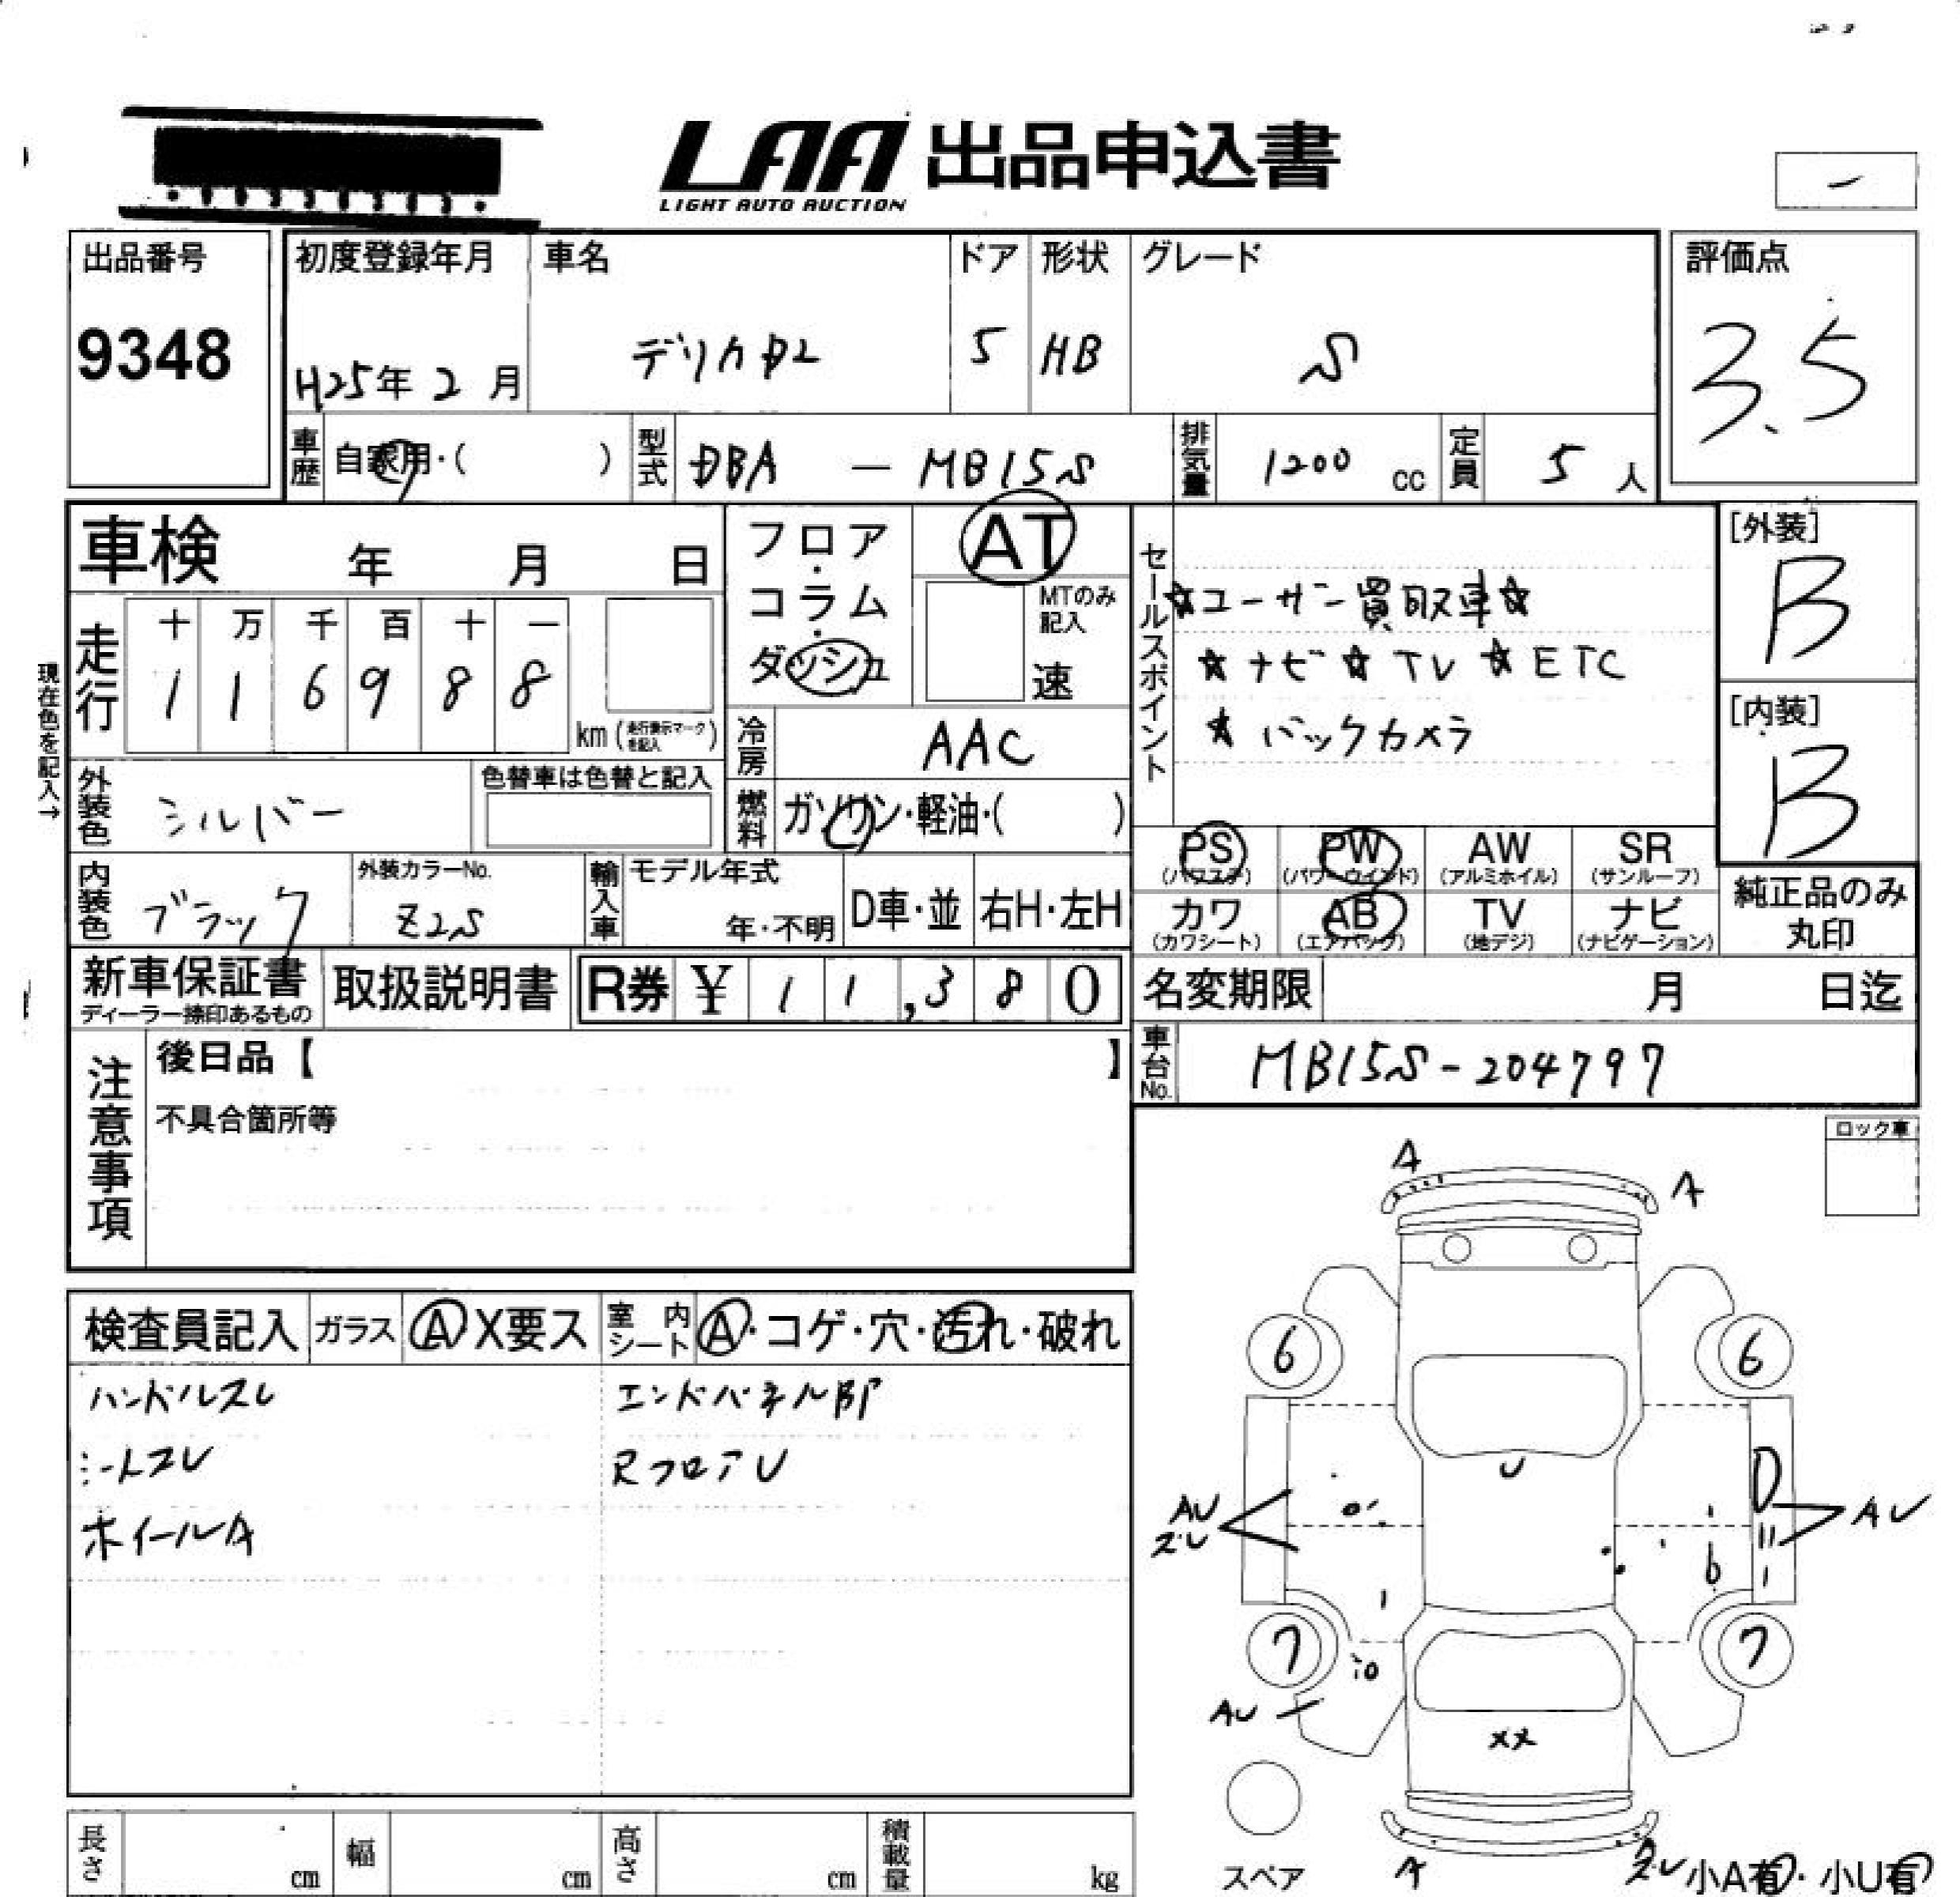 LAA 出品申込書
LIGHT AUTO AUCTION
出品番号
9348
初度登録年月
H25年 2 月
車名
デリカD2
ドア
5
形状
HB
グレード
S
評価点
3.5
車歴 自家用・( )
型式 DBA - MB15S
排気量 1200 cc
定員 5 人
車検 年 月 日
フロア・コラム・ダッシュ
AT
MTのみ記入
速
セールスポイント
☆ユーザー買取車☆
☆ナビ☆TV☆ETC
☆バックカメラ
[外装]
B
[内装]
B
現在色を記入→
走行
十 万 千 百 十 一
1 1 6 9 8 8
km (走行表示マークを記入)
冷房 AAC
外装色 シルバー
色替車は色替と記入
燃料 ガソリン・軽油・( )
PS (パワステ)
PW (パワーウインド)
AW (アルミホイル)
SR (サンルーフ)
カワ (カワシート)
AB (エアバック)
TV (地デジ)
ナビ (ナビゲーション)
純正品のみ丸印
内装色 ブラック
外装カラーNo.
Z2S
輸入車
モデル年式
年・不明
D車・並
右H・左H
新車保証書
ディーラー捺印あるもの
取扱説明書
R券 ¥ 11,380
名変期限 月 日迄
車台No. MB15S-204797
注意事項
後日品【 】
不具合箇所等
ロック車
検査員記入
ガラス A X要ス
室内シート A・コゲ・穴・汚れ・破れ
ハンドルスレ
シートスレ
ホイールA
エンドパネル部P
RフロアU
A
A
6
6
U
AU
ズレ
AU
7
7
AU
XX
A
ズレ
スペア
小A有・小U有
長さ cm
幅 cm
高さ cm
積載量 kg